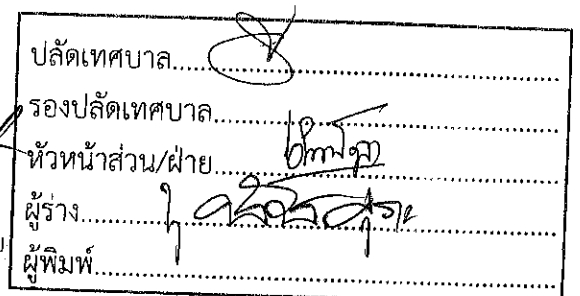 ปลัดเทศบาล........................
รองปลัดเทศบาล........................
หัวหน้าส่วน/ฝ่าย........................
ผู้ร่าง........................
ผู้พิมพ์........................